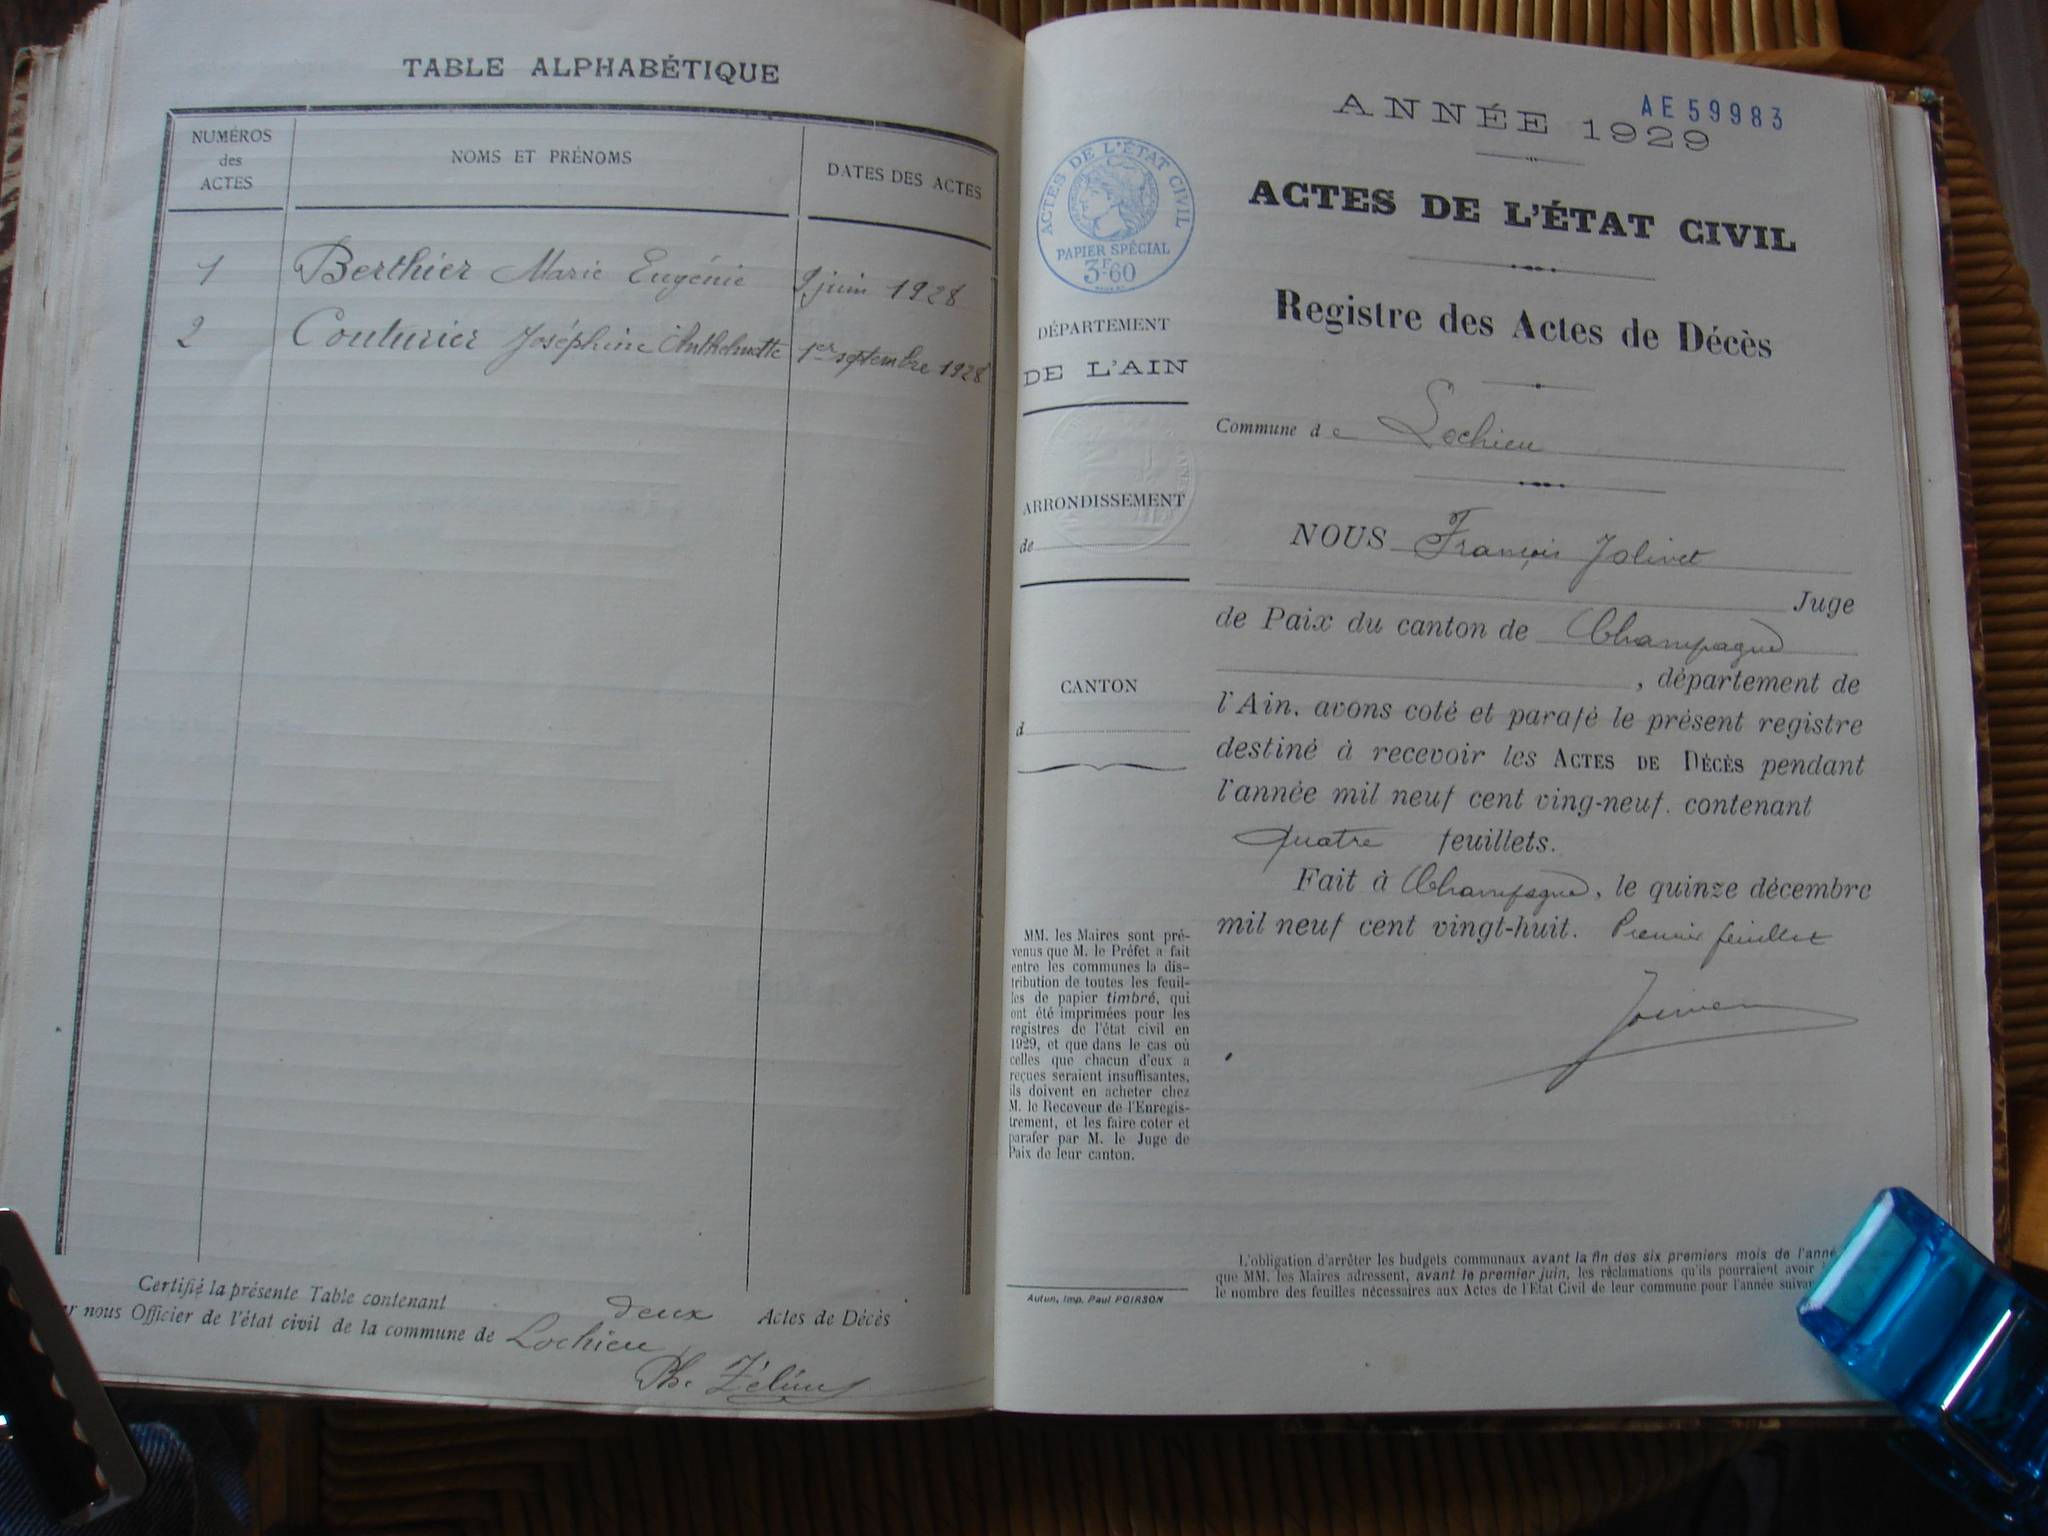 TABLE ALPHABÉTIQUE
NUMÉROS
des
ACTES
NOMS ET PRÉNOMS
DATES DES ACTES
1 Berthier Marie Eugénie 9 juin 1928
2 Couturier Joséphine Anthelmette 1er septembre 1928
Certifié la présente Table contenant deux Actes de Décès
nous Officier de l'état civil de la commune de Lochieu
Ph.
AE 59983
ANNÉE 1929
ACTES DE L'ÉTAT CIVIL
PAPIER SPÉCIAL
3F60
ACTES DE L'ÉTAT CIVIL
Registre des Actes de Décès
DÉPARTEMENT
DE L'AIN
ARRONDISSEMENT
de
CANTON
d
Commune de Lochieu
NOUS François Jolivet
Juge
de Paix du canton de Champagne
, département de
l'Ain, avons coté et parafé le présent registre
destiné à recevoir les ACTES DE DÉCÈS pendant
l'année mil neuf cent ving-neuf. contenant
quatre feuillets.
Fait à Champagne, le quinze décembre
mil neuf cent vingt-huit. Premier feuillet
MM. les Maires sont pré-
venus que M. le Préfet a fait
entre les communes la dis-
tribution de toutes les feuil-
les de papier timbré, qui
ont été imprimées pour les
registres de l'état civil en
1929, et que dans le cas où
celles que chacun d'eux a
reçues seraient insuffisantes,
ils doivent en acheter chez
M. le Receveur de l'Enregis-
trement, et les faire coter et
parafer par M. le Juge de
Paix de leur canton.
Autun, Imp. Paul POIRSON
L'obligation d'arrêter les budgets communaux avant la fin des six premiers mois de l'anné
que MM. les Maires adressent, avant le premier juin, les réclamations qu'ils pourraient avoir
le nombre des feuilles nécessaires aux Actes de l'Etat Civil de leur commune pour l'année suivan